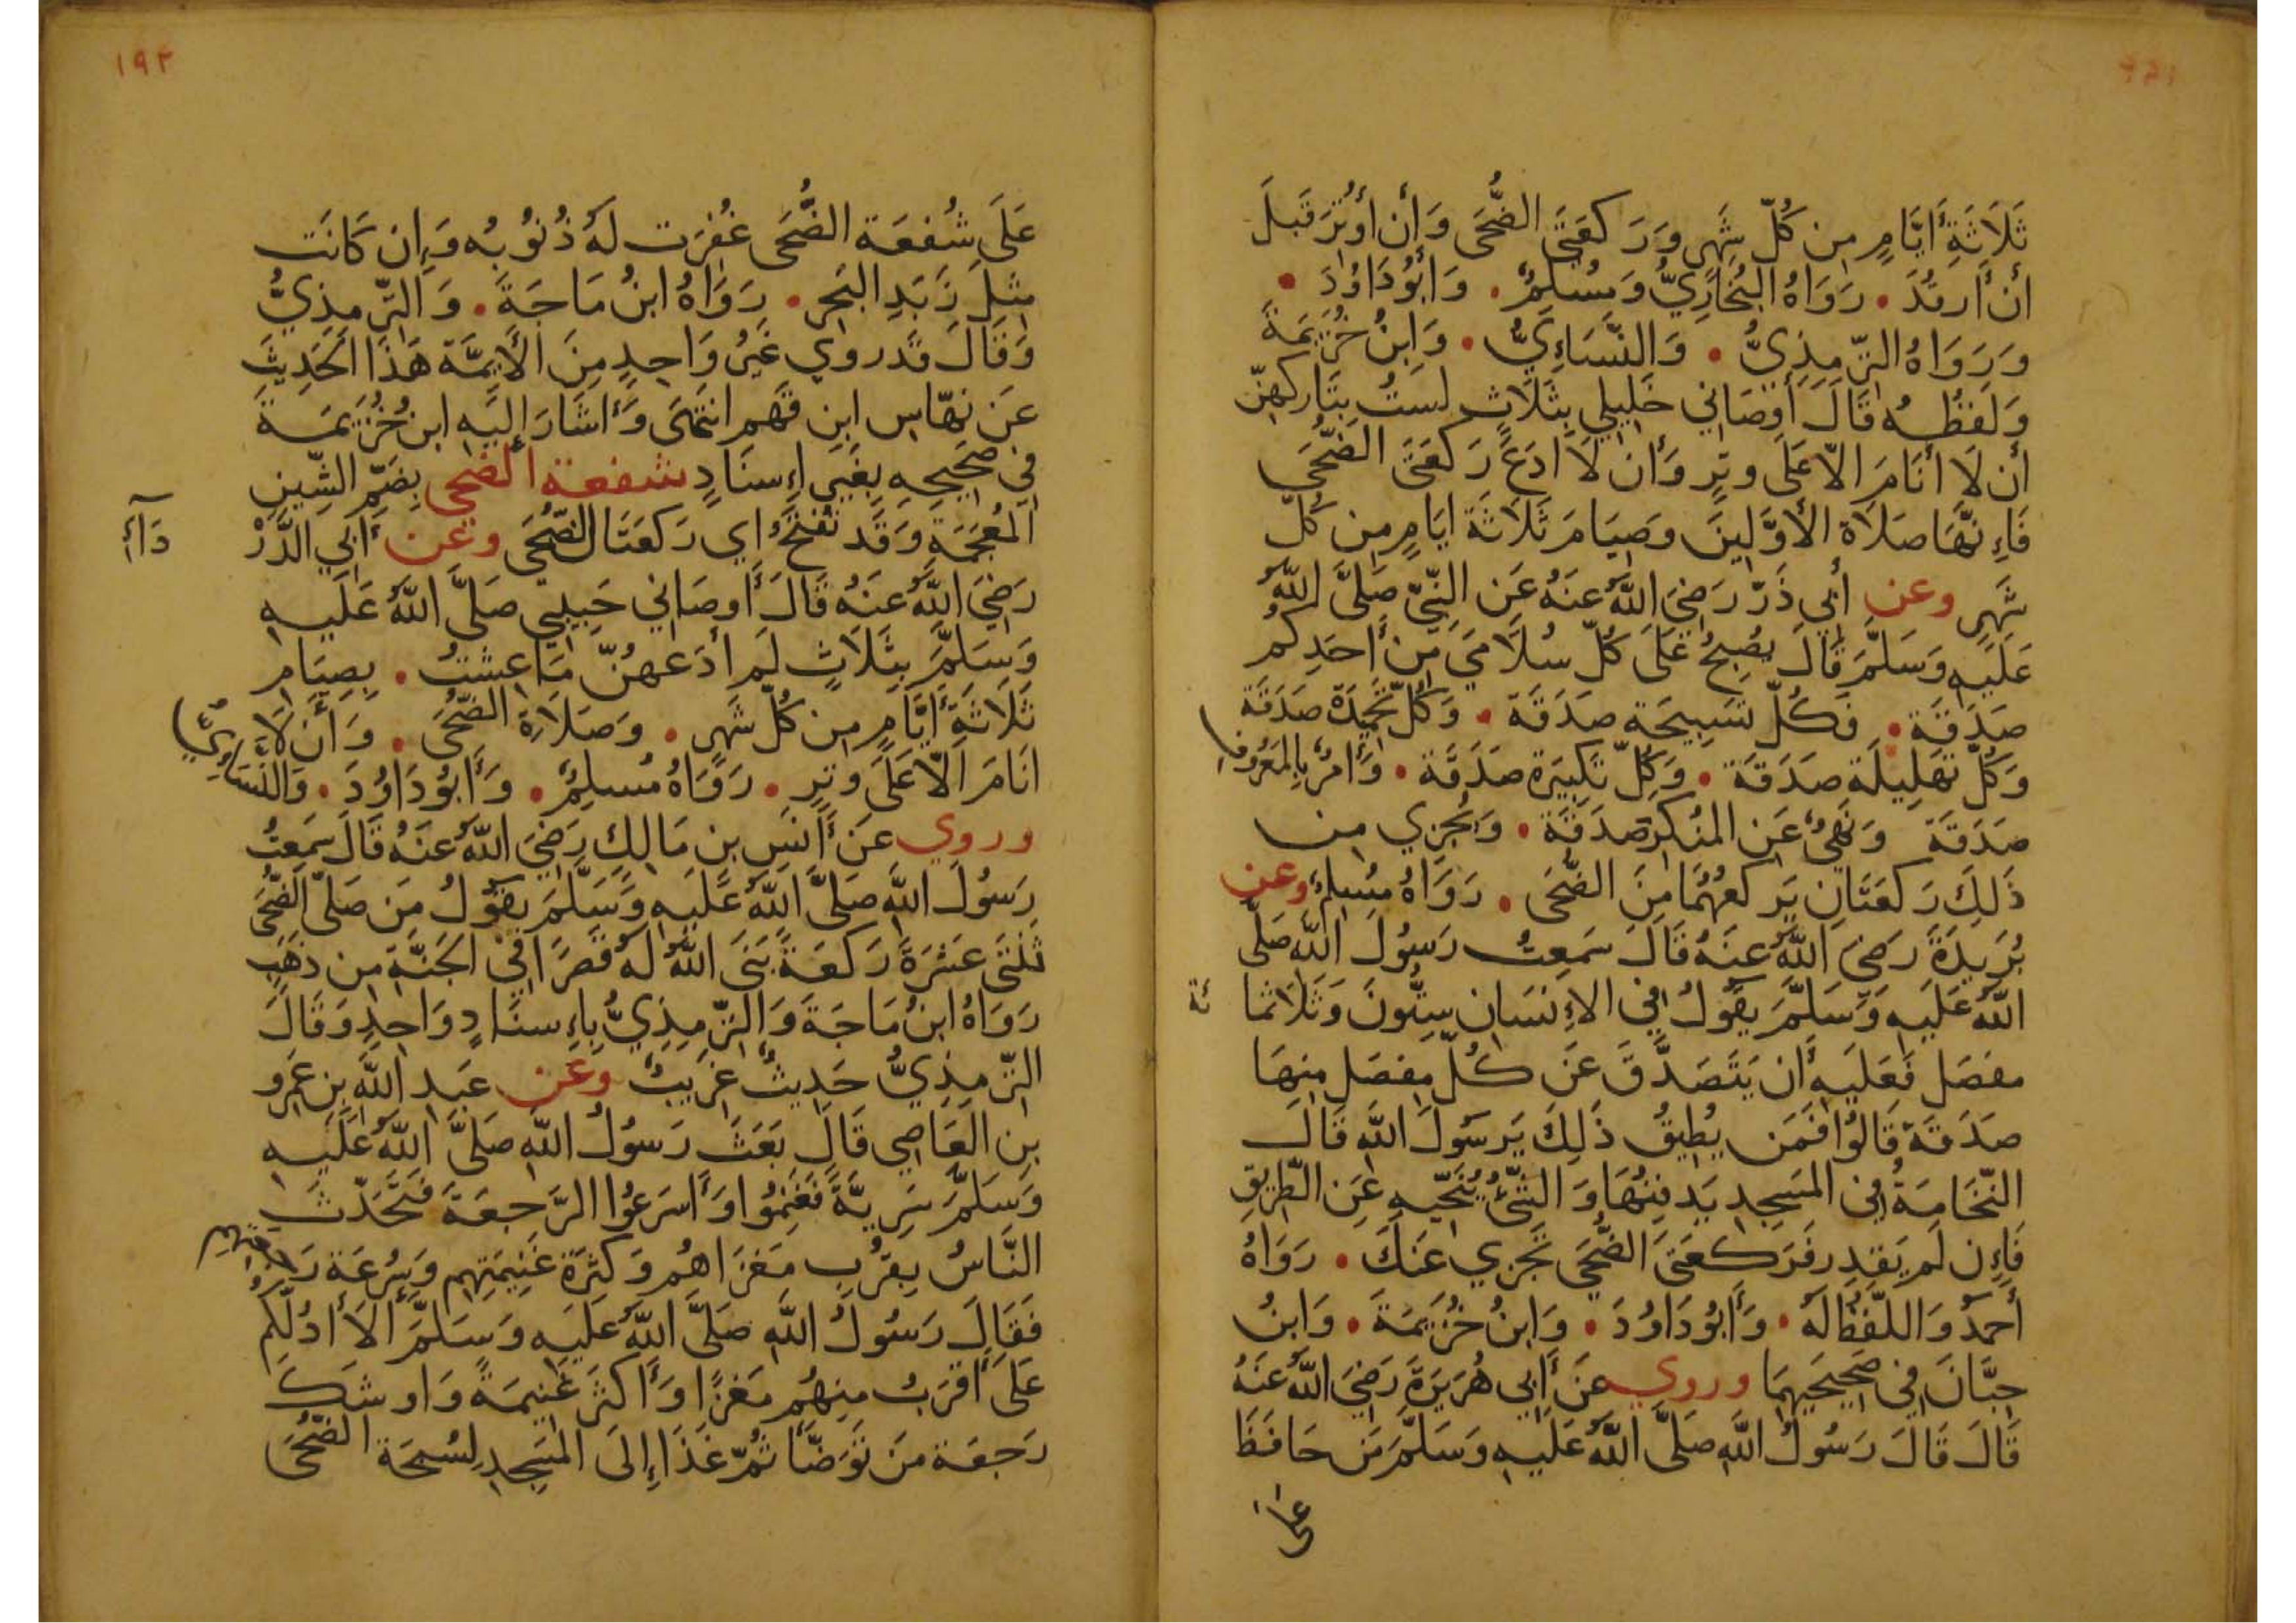 ثَلَاثَةِ أَيَّامٍ مِن كُلِّ شَهرٍ وَرَكعَتَيِ الضُّحَى وَأَن أُوتِرَ قَبلَ
أَن أَرقُدَ . رَوَاهُ البُخَارِيُّ وَمُسلِمٌ . وَأَبُو دَاوُدَ .
وَرَوَاهُ التِّرمِذِيُّ . وَالنَّسَاءِيُّ . وَابنُ خُزَيمَةَ
وَلَفظُهُ قَالَ أَوصَانِي خَلِيلِي بِثَلَاثٍ لَستُ بِتَارِكهِنَّ
أَن لَا أَنَامَ الَّا عَلَى وِترٍ وَأَن لَا ادَعَ رَكعَتَي الضُّحَى
فَإِنَّهَا صَلَاة الأَوَّلِينَ وَصِيَامَ ثَلَاثَةَ ايَامٍ مِن كُلِّ
شَهرٍ وعن أَبِي ذَرٍّ رَضِيَ اللَّهُ عَنهُ عَنِ النَّبِيِّ صَلَّى اللَّهُ
عَلَيهِ وَسَلَّمَ قَالَ يُصبِحُ عَلَى كُلِّ سُلَامَي مِن أَحَدِكُم
صَدَقَة . فَكُلُّ تَسبِيحَةٍ صَدَقَة . وَكُلُّ تَحمِيدَة صَدَقَة
وَكُلُّ تَهلِيلَة صَدَقَة . وَكُلُّ تَكبِيرَة صَدَقَة . وَأَمرٌ بِالمَعرُوفِ
صَدَقَة وَنَهيٌ عَنِ المُنكَرِ صَدَقَة . وَيُجزِي مِن
ذَلِكَ رَكعَتَانِ يَركَعُهُمَا مِنَ الضُّحَى . رَوَاهُ مُسلِمٌ وعن
بُرَيدَةَ رَضِيَ اللَّهُ عَنهُ قَالَ سَمِعتُ رَسُولَ اللَّهِ صَلَّى
اللَّهُ عَلَيهِ وَسَلَّمَ يَقُولُ فِي الإِنسَانِ سِتُّونَ وَثَلَاثمَا
ئة
مفصَل فَعَلَيهِ أَن يَتَصَدَّقَ عَن كُلِّ مِفصَلٍ مِنهَا
صَدَقَةً قَالُوا فَمَن يُطِيقُ ذَلِكَ يَرسُولَ اللَّهِ قَالَ
النُّخَامَةُ فِي المَسجِدِ يَدفِنُهَا وَالشَّيْءُ يُنَحِّيهِ عَنِ الطَّرِيقِ
فَإِن لَم يَقدِر فَرَكعَتَي الضُّحَى تَجزِي عَنكَ . رَوَاهُ
أَحمَدُ وَاللَّفظُ لَهُ . وَأَبُو دَاوُدَ . وَابنُ خُزَيمَةَ . وَابنُ
حِبَّانَ فِي صَحِيحَيهِمَا وروي عَن أَبِي هُرَيرَةَ رَضِيَ اللَّهُ عَنهُ
قَالَ قَالَ رَسُولُ اللَّهِ صَلَّى اللَّهُ عَلَيهِ وَسَلَّمَ مَن حَافَظَ
على
١٩٢
عَلَى شُفعَة الضُّحَى غُفِرَت لَهُ ذُنُوبُه وَإِن كَانَت
مِثلَ زَبَدِ البَحرِ . رَوَاهُ ابنُ مَاجَةَ . وَالتِّرمِذِيُّ
وَقَالَ قَد روي غَيرُ وَاحِدٍ مِنَ الأَيِمَّة هَذَا الحَدِيثَ
عَن نهَّاس ابنِ قَهمٍ انتَهَى وَأَشَارَ إِلَيهِ ابن خُزَيمَةَ
فِي صَحِيحِهِ بِغَيرِ إِسنَادٍ شفعة الضحى بِضَمِّ الشِّينِ
المُعجَمَةِ وَقَد تُفتَحُ اي رَكعَتَا الضُّحَى وعن أَبِي الدَّرْ
دَاءِ
رَضِيَ اللَّهُ عَنهُ قَالَ أَوصَانِي حَبِيبِي صَلَّى اللَّهُ عَلَيهِ
وَسَلَّمَ بِثَلَاثٍ لَم أَدَعهُنَّ مَا عِشتُ . بِصِيَامِ
ثَلَاثَةِ أَيَّامٍ مِن كُلِّ شَهرٍ . وَصَلَاةِ الضُّحَى . وَأَن لَا
انَامَ الَّا عَلَى وِترٍ . رَوَاهُ مُسلِمٌ . وَأَبُو دَاوُدَ . وَالنَّسَاءِيُّ
وروي عَن أَنَسِ بنِ مَالِكٍ رَضِيَ اللَّهُ عَنهُ قَالَ سَمِعتُ
رَسُولَ اللَّهِ صَلَّى اللَّهُ عَلَيهِ وَسَلَّمَ يَقُولُ مَن صَلَّى الضُّحَى
ثِنْتَي عَشرَةَ رَكعَةً بَنَى اللَّهُ لَهُ قَصرًا فِي الجَنَّةِ مِن ذَهَبٍ
رَوَاهُ ابنُ مَاجَةَ وَالتِّرمِذِيُّ بِاءِسنَادٍ وَاحِدٍ وَقَالَ
التِّرمِذِيُّ حَدِيثٌ غَرِيبٌ وعن عَبدِ اللَّهِ بنِ عَمرِو
بنِ العَاصِي قَالَ بَعَثَ رَسُولُ اللَّهِ صَلَّى اللَّهُ عَلَيهِ
وَسَلَّمَ سَرِيَّةً فَغَنِمُوا وَأَسرَعُوا الرَّجعَةَ فَتَحَدَّثَ
النَّاسُ بِقُربِ مَغزَاهُم وَكَثرَة غَنِيمَتِهِم وَسُرعَة رَجعَتِهِم
فَقَالَ رَسُولُ اللَّهِ صَلَّى اللَّهُ عَلَيهِ وَسَلَّمَ أَلَا أَدُلُّكُم
عَلَى أَقرَبُ مِنهُم مَغزًا وَأَكثَرَ غَنِيمَةً وَاوشَكَ
رَجعَة مَن تَوَضَّأَ ثُمَّ غَدَا إِلَى المَسجِدِ لِسُبحَة الضُّحَى